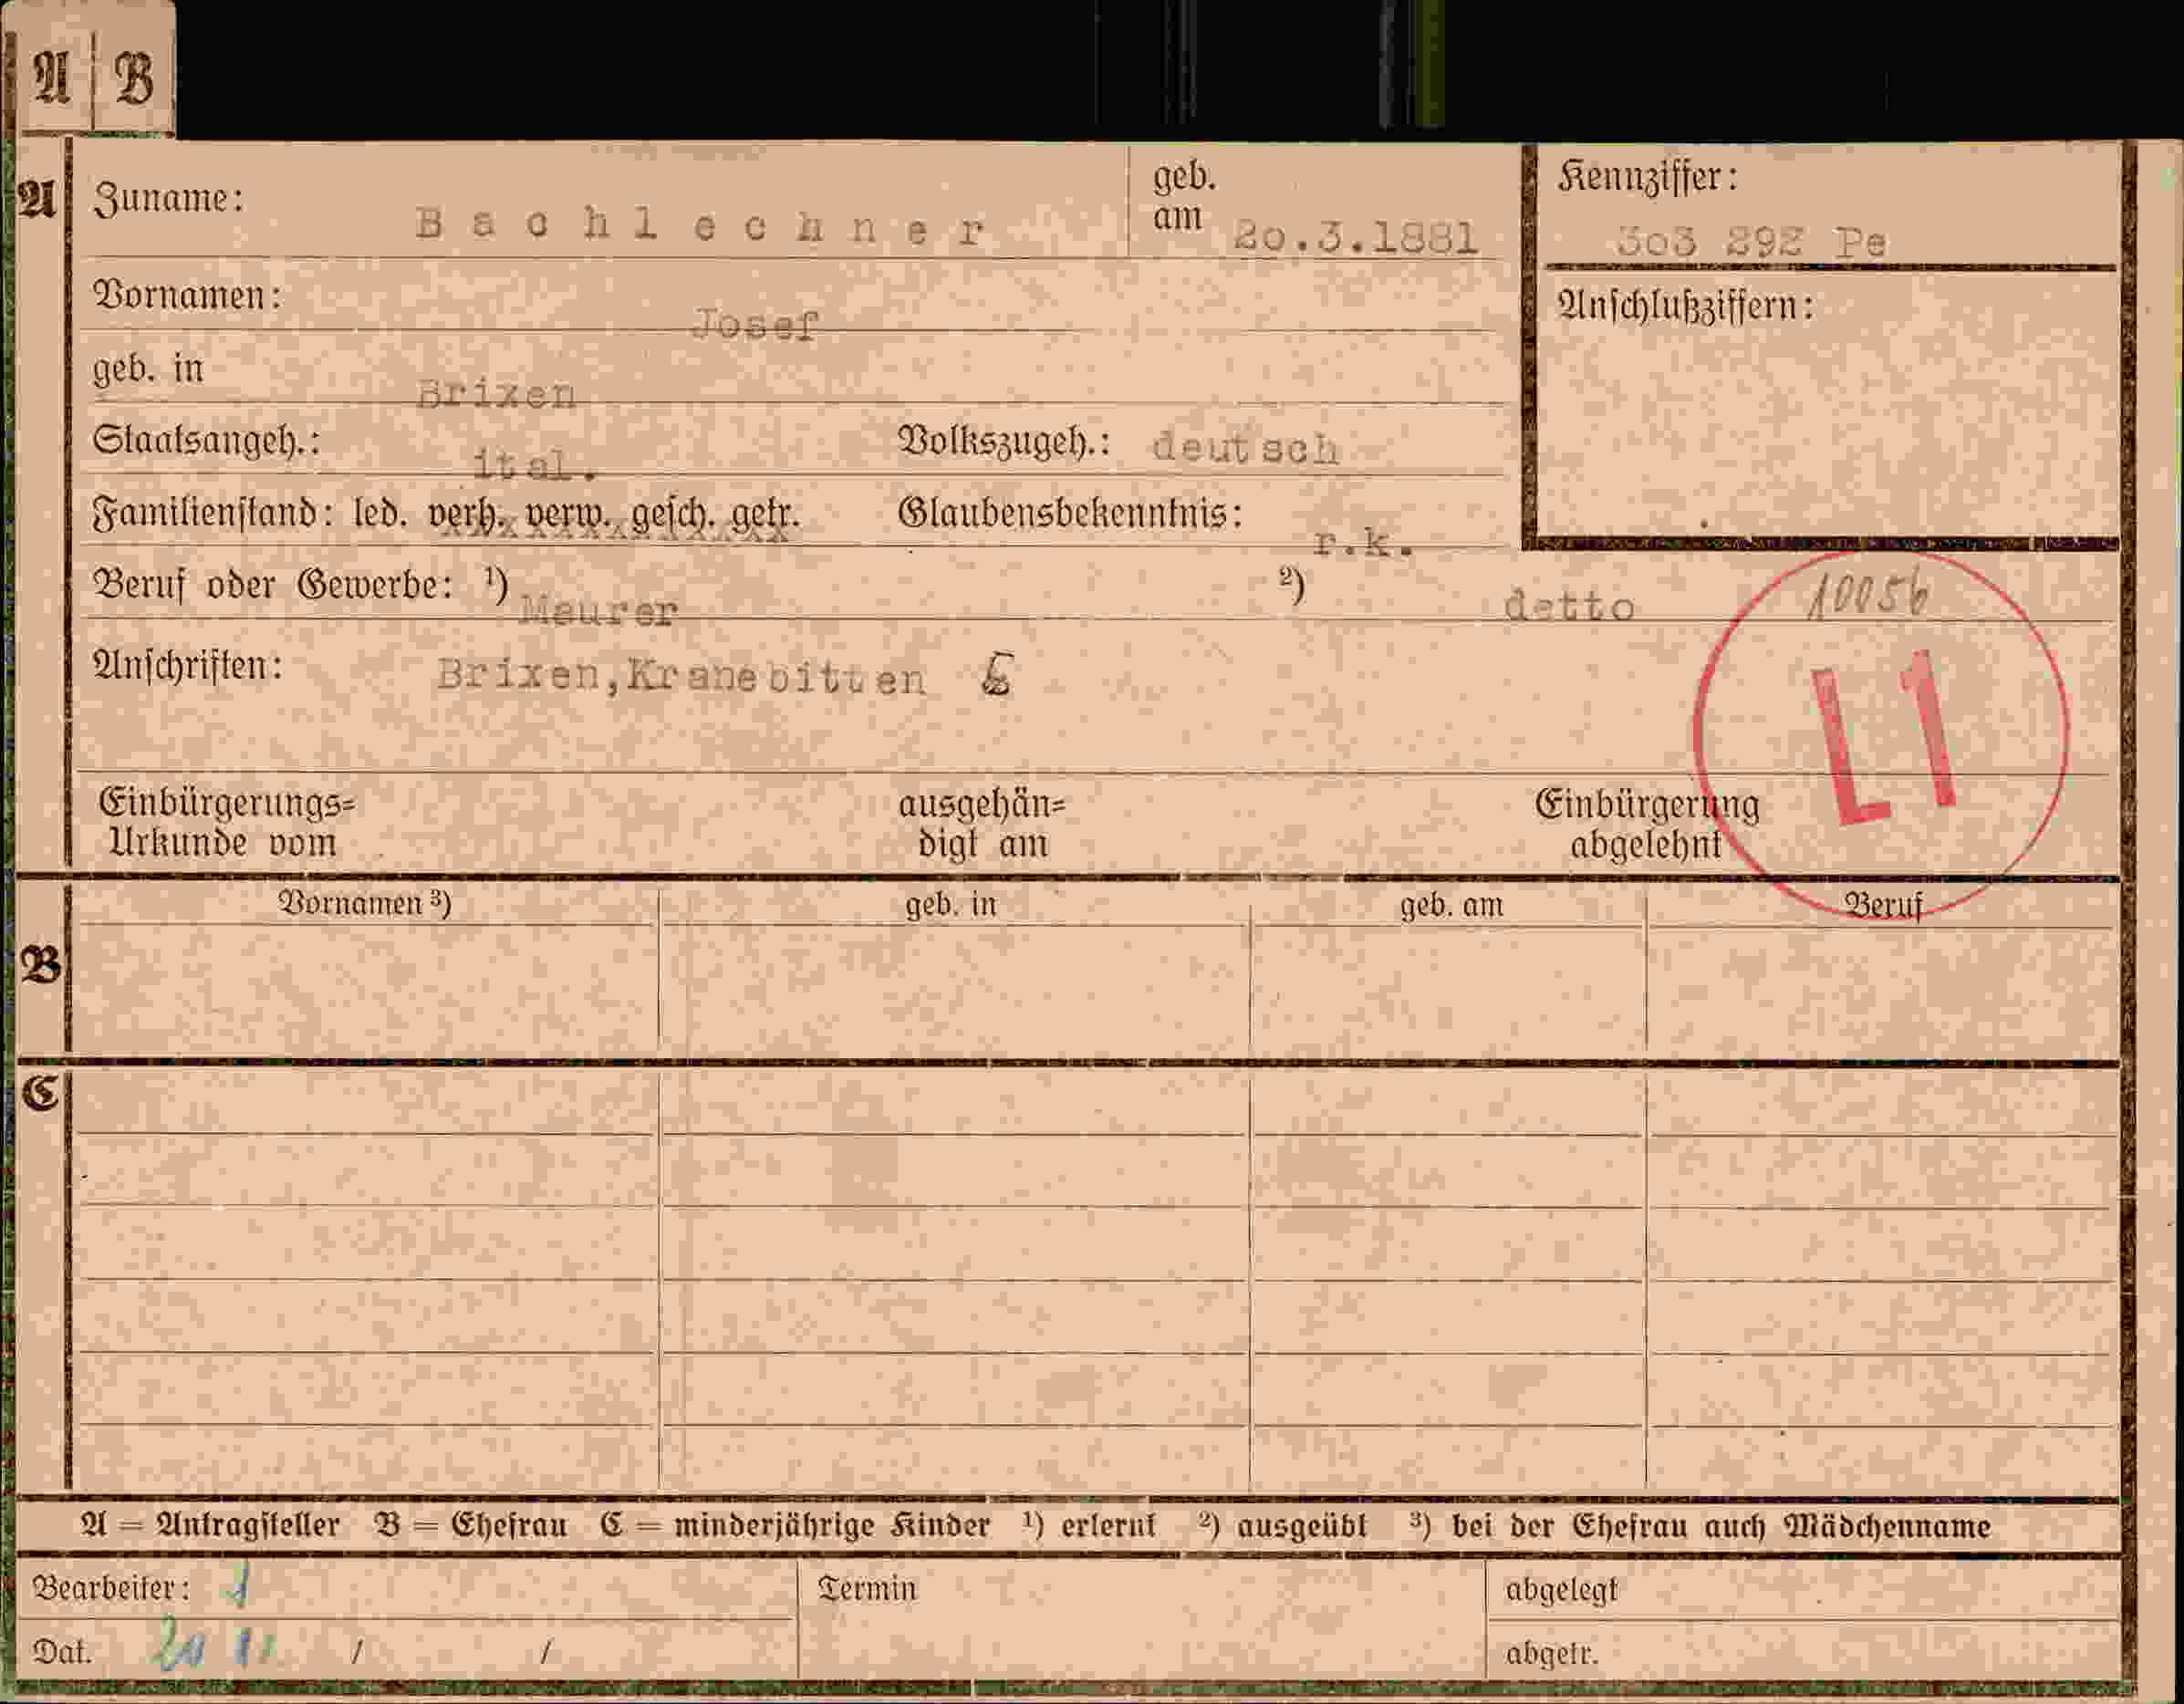 A B
A Zuname: Bachlechner geb. am 20.3.1881 Kennziffer: 303 292 Pe
Vornamen: Josef Anschlußziffern:
geb. in Brixen
Staatsangeh.: ital. Volkszugeh.: deutsch
Familienstand: led. verh. verw. gesch. getr. Glaubensbekenntnis: r.k.
Beruf oder Gewerbe: ¹) Maurer ²) detto 10056
Anschriften: Brixen, Kranebitten
L1
Einbürgerungs= ausgehän= Einbürgerung
Urkunde vom digt am abgelehnt
Vornamen ³) geb. in geb. am Beruf
B
C
A = Antragsteller B = Ehefrau C = minderjährige Kinder ¹) erlernt ²) ausgeübt ³) bei der Ehefrau auch Mädchenname
Bearbeiter: Termin abgelegt
Dat. 20 11 / / abgetr.